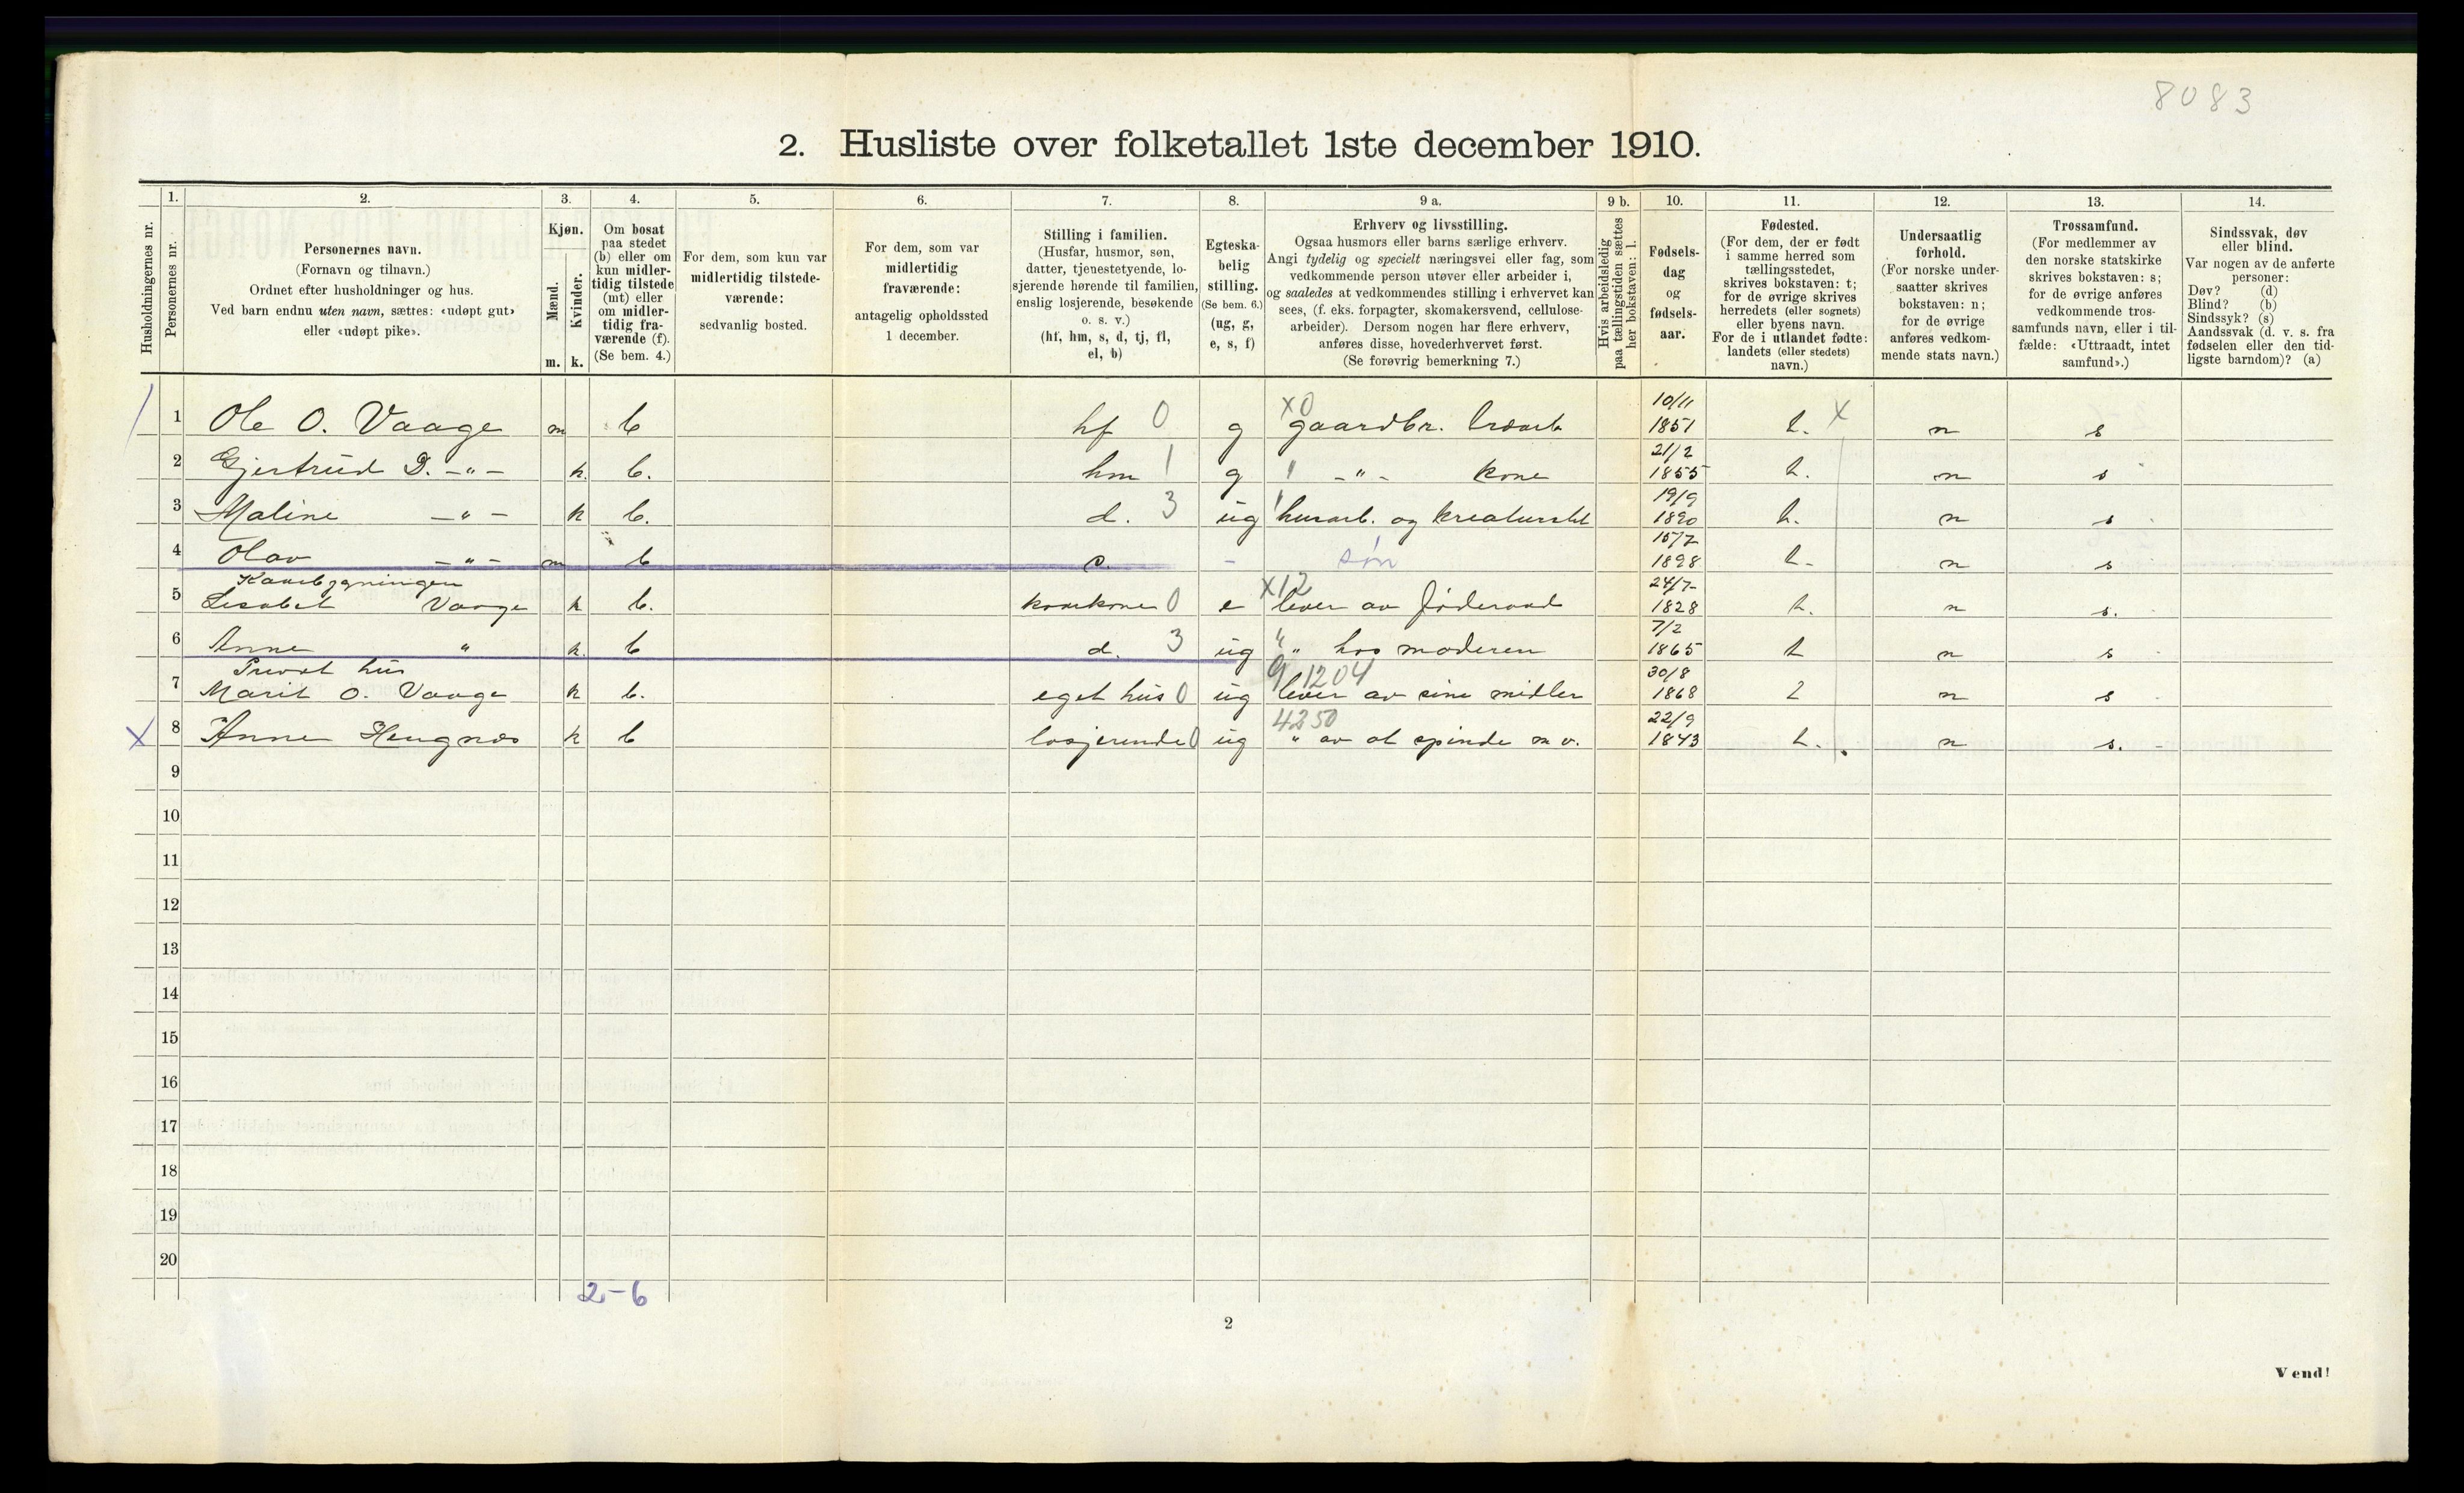 8083
2. Husliste over folketallet 1ste december 1910.
Husholdningernes nr.
1.
Personernes nr.
2.
Personernes navn.
(Fornavn og tilnavn.)
Ordnet efter husholdninger og hus.
Ved barn endnu uten navn, sættes: «udøpt gut»
eller «udøpt pike».
3.
Kjøn.
Mænd.
Kvinder.
m. k.
4.
Om bosat
paa stedet
(b) eller om
kun midler-
tidig tilstede
(mt) eller
om midler-
tidig fra-
værende (f).
(Se bem. 4.)
5.
For dem, som kun var
midlertidig tilstede-
værende:
sedvanlig bosted.
6.
For dem, som var
midlertidig
fraværende:
antagelig opholdssted
1 december.
7.
Stilling i familien.
(Husfar, husmor, søn,
datter, tjenestetyende, lo-
sjerende hørende til familien,
enslig losjerende, besøkende
o. s. v.)
(hf, hm, s, d, tj, fl,
el, b)
8.
Egteska-
belig
stilling.
(Se bem. 6.)
(ug, g,
e, s, f)
9 a.
Erhverv og livsstilling.
Ogsaa husmors eller barns særlige erhverv.
Angi tydelig og specielt næringsvei eller fag, som
vedkommende person utøver eller arbeider i,
og saaledes at vedkommendes stilling i erhvervet kan
sees, (f. eks. forpagter, skomakersvend, cellulose-
arbeider). Dersom nogen har flere erhverv,
anføres disse, hovederhvervet først.
(Se forøvrig bemerkning 7.)
9 b.
Hvis arbeidsledig
paa tællingstiden sættes
her bokstaven: l.
10.
Fødsels-
dag
og
fødsels-
aar.
11.
Fødested.
(For dem, der er født
i samme herred som
tællingsstedet,
skrives bokstaven: t;
for de øvrige skrives
herredets (eller sognets)
eller byens navn.
For de i utlandet fødte:
landets (eller stedets)
navn.)
12.
Undersaatlig
forhold.
(For norske under-
saatter skrives
bokstaven: n;
for de øvrige
anføres vedkom-
mende stats navn.)
13.
Trossamfund.
(For medlemmer av
den norske statskirke
skrives bokstaven: s;
for de øvrige anføres
vedkommende tros-
samfunds navn, eller i til-
fælde: «Uttraadt, intet
samfund».)
14.
Sindssvak, døv
eller blind.
Var nogen av de anførte
personer:
Døv? (d)
Blind? (b)
Sindssyk? (s)
Aandssvak (d. v. s. fra
fødselen eller den tid-
ligste barndom)? (a)
1 Ole O. Vaage m b hf 0 g x0 gaardbr. 10/11 1851 t. x n s
2 Gjertrud D. -"- k. b. hm 1 g 1 -"- kone 21/2 1855 t. n s
3 Maline -"- k b. d. 3 ug 1 husarb. og kreaturstel 19/9 1890 t. n s
4 Olav -"- m b s. - søn 15/7 1898 t. n s
Kaarbygningen
5 Lisabet Vaage k b. kaarkone 0 e x12 lever av føderaad 24/7 1828 t. n s.
6 Anne " k. b d. 3 ug " hos moderen 7/2 1865 t n s
Privat hus
7 Marit O. Vaage k b. eget hus 0 ug 9 1204 lever av sine midler 30/8 1868 t n s
x 8 Anne Hengnæs k b losjerende 0 ug 4250 " av at spinde m v. 22/9 1843 t. n s.
9
10
11
12
13
14
15
16
17
18
19
20
2-6
2
Vend!